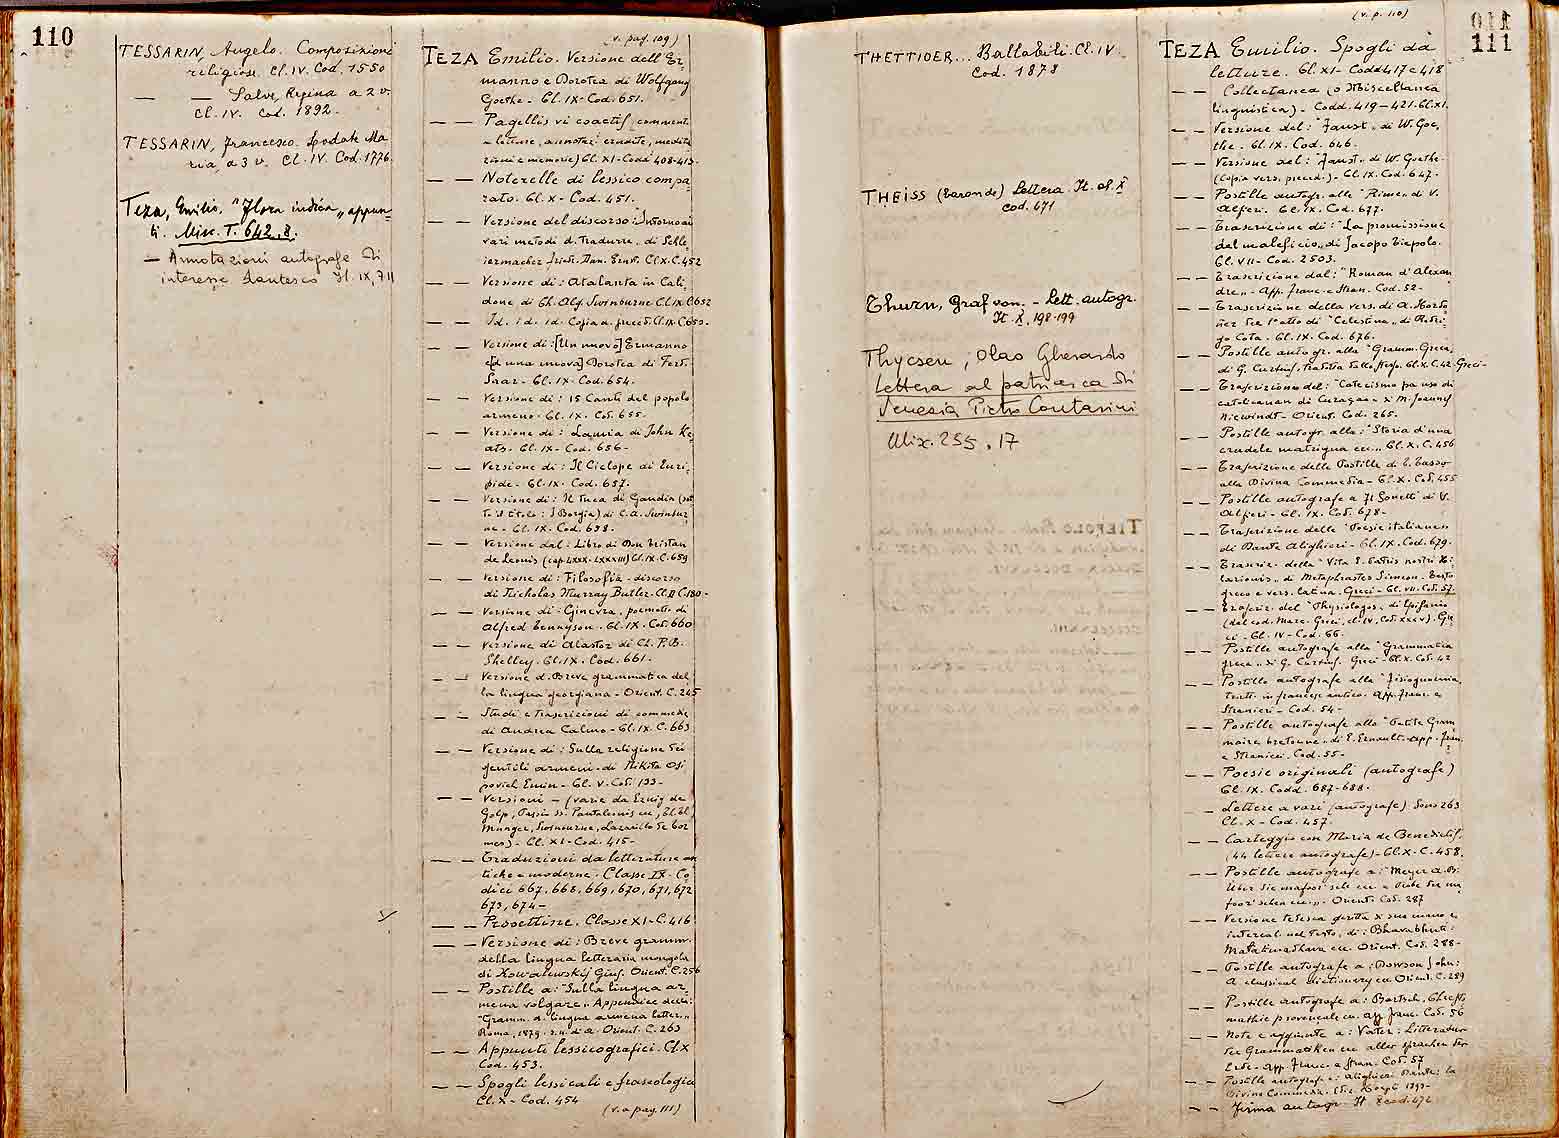 110
TESSARIN, Angelo. Composizioni
religiose. Cl. IV. Cod. 1550
— — Salve, Regina a 2 v.
Cl. IV. Cod. 1892.
TESSARIN, Francesco. Lodate Ma
ria, a 3 v. Cl. IV. Cod. 1776.
Teza, Emilio. "Flora indica„ appun-
ti. Misc. T. 642. 8.
— Annotazioni autografe di
interesse dantesco It. IX, 711
(v. pag. 109)
TEZA Emilio. Versione dell'Er-
manno e Dorotea di Wolfgang
Goethe - Cl. IX - Cod. 651.
— — Pagellis vi coactis, comment.
e letture, annotaz. erudite, medita
zioni e memorie) Cl. XI - Codd. 408-413.
— — Noterelle di lessico compa-
rato. Cl. X - Cod. 451.
— — Versione del discorso: Intorno ai
vari metodi d. tradurre, di Schle-
iermacher Fried. Dan. Ernst. Cl. X. C. 452
— — Versione di: Atalanta in Cali-
done di Ch. Alg. Swinburne Cl. IX C. 652
— — Id. id. id. Copia d. preced. Cl. IX. C. 653.
— — Versione di: [Un nuovo] Ermanno
e[d una nuova] Dorotea di Ferd.
Saar - Cl. IX - Cod. 654.
— — Versione di: 15 Canti del popolo
armeno - Cl. IX. Cod. 655.
— — Versione di: Lamia di John Ke-
ats - Cl. IX - Cod. 656 -
— — Versione di: Il Ciclope di Euri-
pide - Cl. IX. Cod. 657.
— — Versione di: Il Duca di Gandia (sot
to il titolo: I Borgia) di C. A. Swinbur
ne - Cl. IX. Cod. 658.
— — Versione dal: Libro di Don Tristan
de Leonis (cap. LXXX-LXXXIII) Cl. IX. C. 659
— — Versione di: Filosofia - discorso
di Nicholas Murray Butler - Cl. II C. 180 -
— — Versione di - Ginevra, poemetto di
Alfred Tennyson. Cl. IX. Cod. 660
— — Versione di Alastor di Ch. P. B.
Shelley. Cl. IX. Cod. 661.
— — Versione d. Breve grammatica del
la lingua georgiana - Orient. C. 245
— — Studi e trascrizioni di commedie
di Andrea Calmo - Cl. IX. C. 663
— — Versione di: Sulla religione dei
gentili armeni - di Nikita Osi
povich Emin - Cl. V. Cod. 133 -
— — Versioni - (varie da Eznig de
Golp, Passio ss. Pantaleonis
Munger, Swinburne, Lazarillo de Tor
mes) - Cl. XI - Cod. 415 -
— — Traduzioni da letterature an
tiche e moderne. Classe IX - Co
dici 667, 668, 669, 670, 671, 672
673, 674 -
— — Prosettine. Classe XI - C. 416
— — Versione di: Breve gramm.
della lingua letteraria mongola
di Kowalewskij Gius. Orient. C. 256
— — Postille a: "Sulla lingua ar-
mena volgare„ Appendice della:
"Gramm. d. lingua armena letter.„
Roma, 1879. s. n. d'a. Orient. C. 263
— — Appunti lessicografici. Cl. X
Cod. 453.
— — Spogli lessicali e fraseologici
Cl. X - Cod. 454
(v. a pag. 111)
THETTIOER... Ballabili. Cl. IV.
Cod. 1878
THEISS (barone de) Lettera It. cl. X
cod. 471
Thurn, Graf von. - Lett. autogr.
It. X, 198-199
Thycsen, Olao Gherardo
lettera al patriarca di
Venezia Pietro Contarini
Mix. 255, 17
(v. p. 110)
011
111
TEZA Emilio. Spogli da
letture. Cl. XI - Codd. 417 e 418
— — Collectanea (o Miscellanea
linguistica) - Codd. 419-421. Cl. XI.
— — Versione del: "Faust„ di W. Goe-
the. Cl. IX. Cod. 646.
— — Versione del: "Faust„ di W. Goethe.
(Copia vers. preced.) - Cl. IX. Cod. 647.
— — Postille autogr. alle "Rime„ di V.
Alfieri. Cl. IX. Cod. 677.
— — Trascrizione di: "La promissione
del maleficio„ di Jacopo Tiepolo.
Cl. VII - Cod. 2503.
— — Trascrizione dal: "Roman d'Alexan
dre„ - App. Franc. e Stran. Cod. 52 -
— — Trascrizione della vers. di A. Hordo
ñez del 1° atto di "Celestina„ di Rodri-
go Cota. Cl. IX. Cod. 676.
— — Postille autogr. alla "Gramm. Greca„
di G. Curtius, tradotta Cl. X. C. 42 - Greci -
— — Trascrizione del: "Catecismo pa uso di
catolicanan di Curaçao„ di M. Joannes
Niewindt - Orient. Cod. 265.
— — Postille autogr. alla: "Storia d'una
crudele matrigna ecc.„ Cl. X. C. 456
— — Trascrizione delle Postille di T. Tasso
alla Divina Commedia - Cl. X. Cod. 455
— — Postille autografe a "I Sonetti" di V.
Alfieri - Cl. IX. Cod. 678 -
— — Trascrizione delle "Poesie italiane„
di Dante Alighieri - Cl. IX. Cod. 679.
— — Trascriz. della "Vita S. Patris nostri Hi
larionis„ di Metaphrastes Simeon. Testo
greco e vers. latina. Greci - Cl. VII. Cod. 57
— — Trascriz. del "Physiologos„ di Epifanio
(dal cod. Marc. Greci, cl. IV, Cod. XXXV). Gre
ci - Cl. IV - Cod. 66.
— — Postille autografe alla "Grammatica
greca„ di G. Curtius. Greci - Cl. X. Cod. 42
— — Postille autografe alla "Fisiognomia„
tratt. in francese antico. App. Franc. e
Stranieri - Cod. 54 -
— — Postille autografe alla "Petite Gram
maire bretonne„ di E. Ernault. App. Fran.
e Stranieri. Cod. 55 -
— — Poesie originali (autografe)
Cl. IX. Codd. 687-688.
— — Lettere a vari (autografe). Sono 263
Cl. X - Cod. 457.
— — Carteggio con Maria de Benedictis.
(44 lettere autografe) - Cl. X - C. 458.
— — Postille autografe a: "Meyer
Über die
Orient. Cod. 287
— — Versione tedesca scritta di sua mano e
intercal. nel testo, di: Bhavabhuti:
Malatimadhava ecc. Orient. Cod. 288 -
— — Postille autografe a: Dowson John:
A classical dictionary ecc. Orient. C. 289
— — Postille autografe a: Bartsch, Chresto
mathie provençale ecc. App. Franc. Cod. 56
— — Note e aggiunte a: Vater: Litteratur
der Grammatiken ecc. aller Sprachen der
Erde - App. Franc. e Stran. Cod. 57
— — Postille autografe a: Alighieri Dante: La
Divina Commedia.
— — Firma autogr. It. X cod. 472